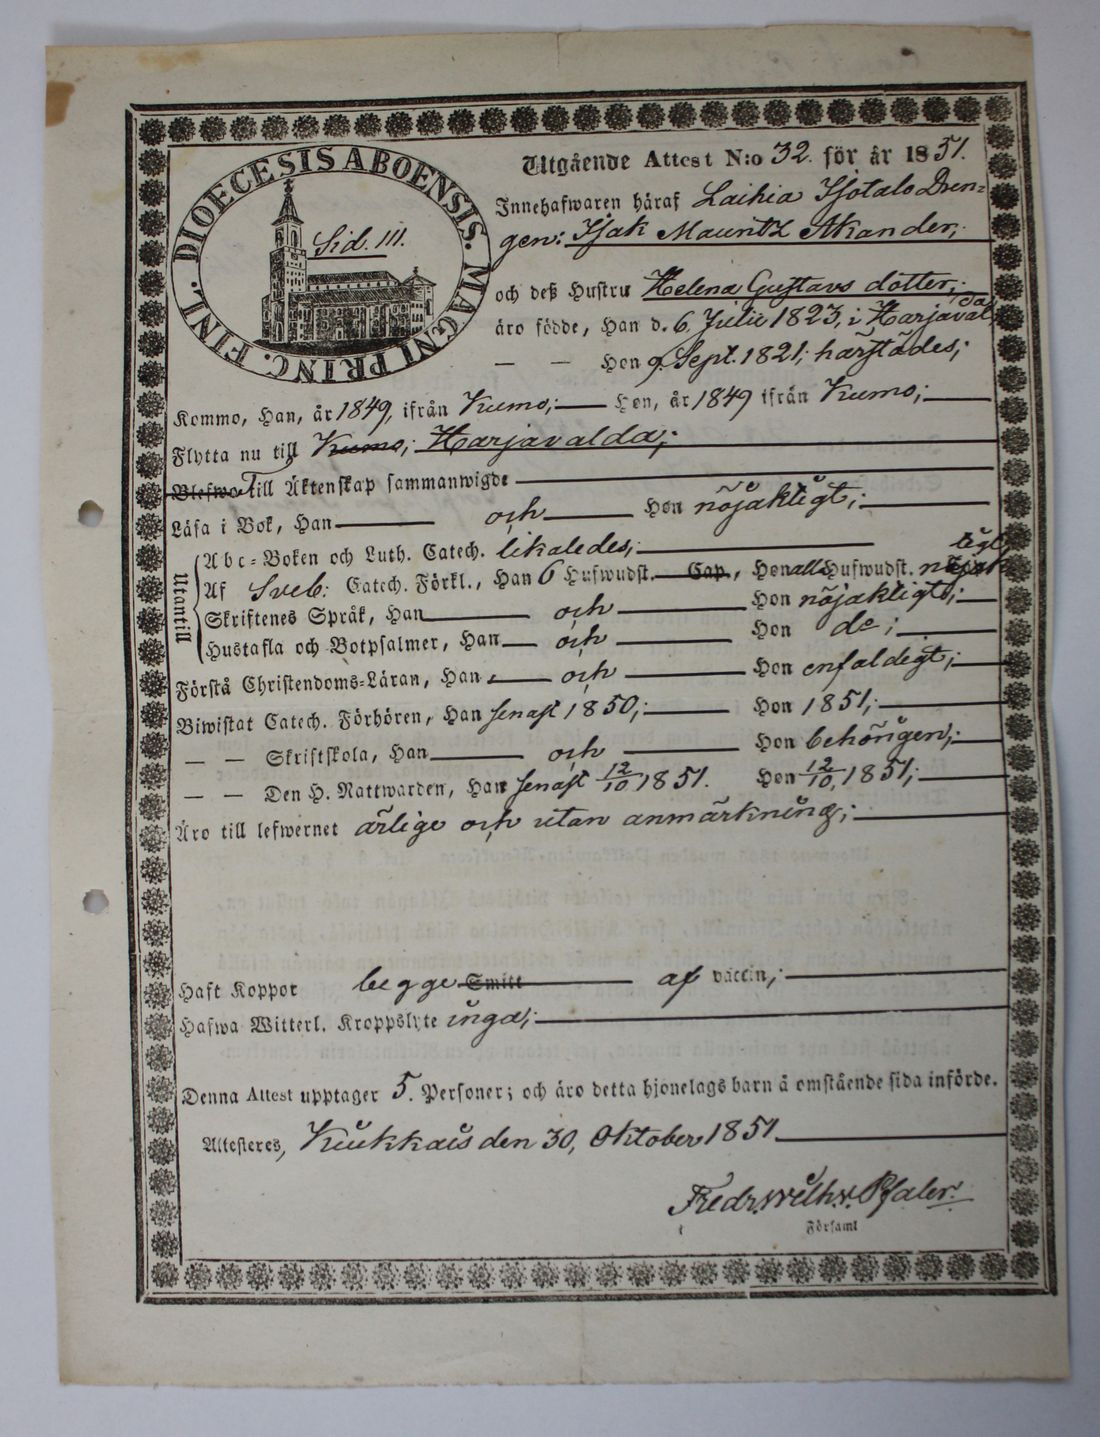 DIOECESIS ABOENSIS. MAGNI PRINC. FINL.
Sid. 111.
Utgående Attest N:o 32. för år 1851.
Innehafwaren häraf Laihia Isotalo Dren-
gen: Isak Mauritz Akander;
och deß Hustru Helena Gustavs dotter;
äro födde, Han d. 6 Julii 1823, i Harjavalda
— — Hon 9. Sept. 1821; härstädes;
Kommo, Han, år 1849, ifrån Kumo; Hon, år 1849 ifrån Kumo;
Flytta nu till Kumo; Harjavalda;
Blefwo Till Äktenskap sammanwigde
Läsa i Bok, Han och Hon nöjaktigt;
Utantill
Abc-Boken och Luth. Catech. likaledes;
Af Sveb. Catech. Förkl., Han 6 Hufwudst. Cap, Hon all Hufwudst. nöjaktigt
Skriftenes Språk, Han och Hon nöjaktigt;
Hustafla och Botpsalmer, Han och Hon do;
Förstå Christendoms-Läran, Han och Hon enfaldigt;
Biwistat Catech. Förhören, Han senast 1850; Hon 1851;
— — Skriftskola, Han och Hon behörigen;
— — Den H. Nattwarden, Han senast 12/10 1851. Hon 12/10 1851;
Äro till lefwernet ärlige och utan anmärkning;
Haft Koppor begge Smitt af vaccin;
Hafwa Witterl. Kroppslyte inga;
Denna Attest upptager 5. Personer; och äro detta hjonelags barn å omstående sida införde.
Attesteres, Kiukkais den 30, Oktober 1851
Fredr. Wilh. v. Pfaler.
Församl